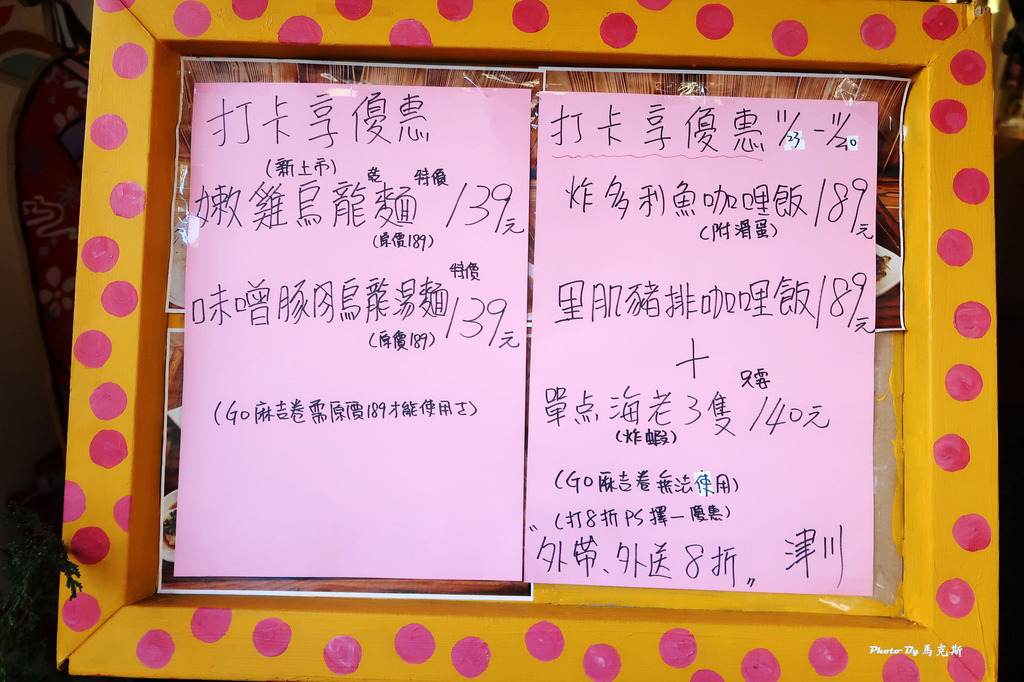 打卡享優惠
(新上市)
嫩雞烏龍麵 特價 139元
(原價189)
味噌豚肉烏龍湯麵 特價 139元
(原價189)
(GO麻吉卷需原價189才能使用)
打卡享優惠 11/23 - 11/20
炸多利魚咖哩飯 189元
(附滑蛋)
里肌豬排咖哩飯 189元
+
單点海老3隻 只要 140元
(炸蝦)
(GO麻吉卷無法使用)
(打8折PS擇一優惠)
"外帶、外送8折" 津川
Photo By 馬克斯